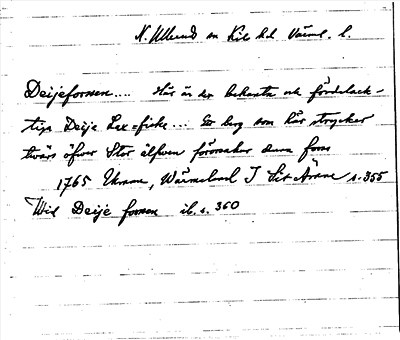 N. Ullerud sn Kils hd. Värml. l.
Deijeforssen.... Här är den bekanta och fördelack-
tiga Deije Lax=fiske... Et berg som här strycker
twärs öfwer Stor älfwen förorsaker denna forss
1765 Uhrane, Wärmeland I Sit Ämne s. 355
Wid Deije forssen ib. s. 360